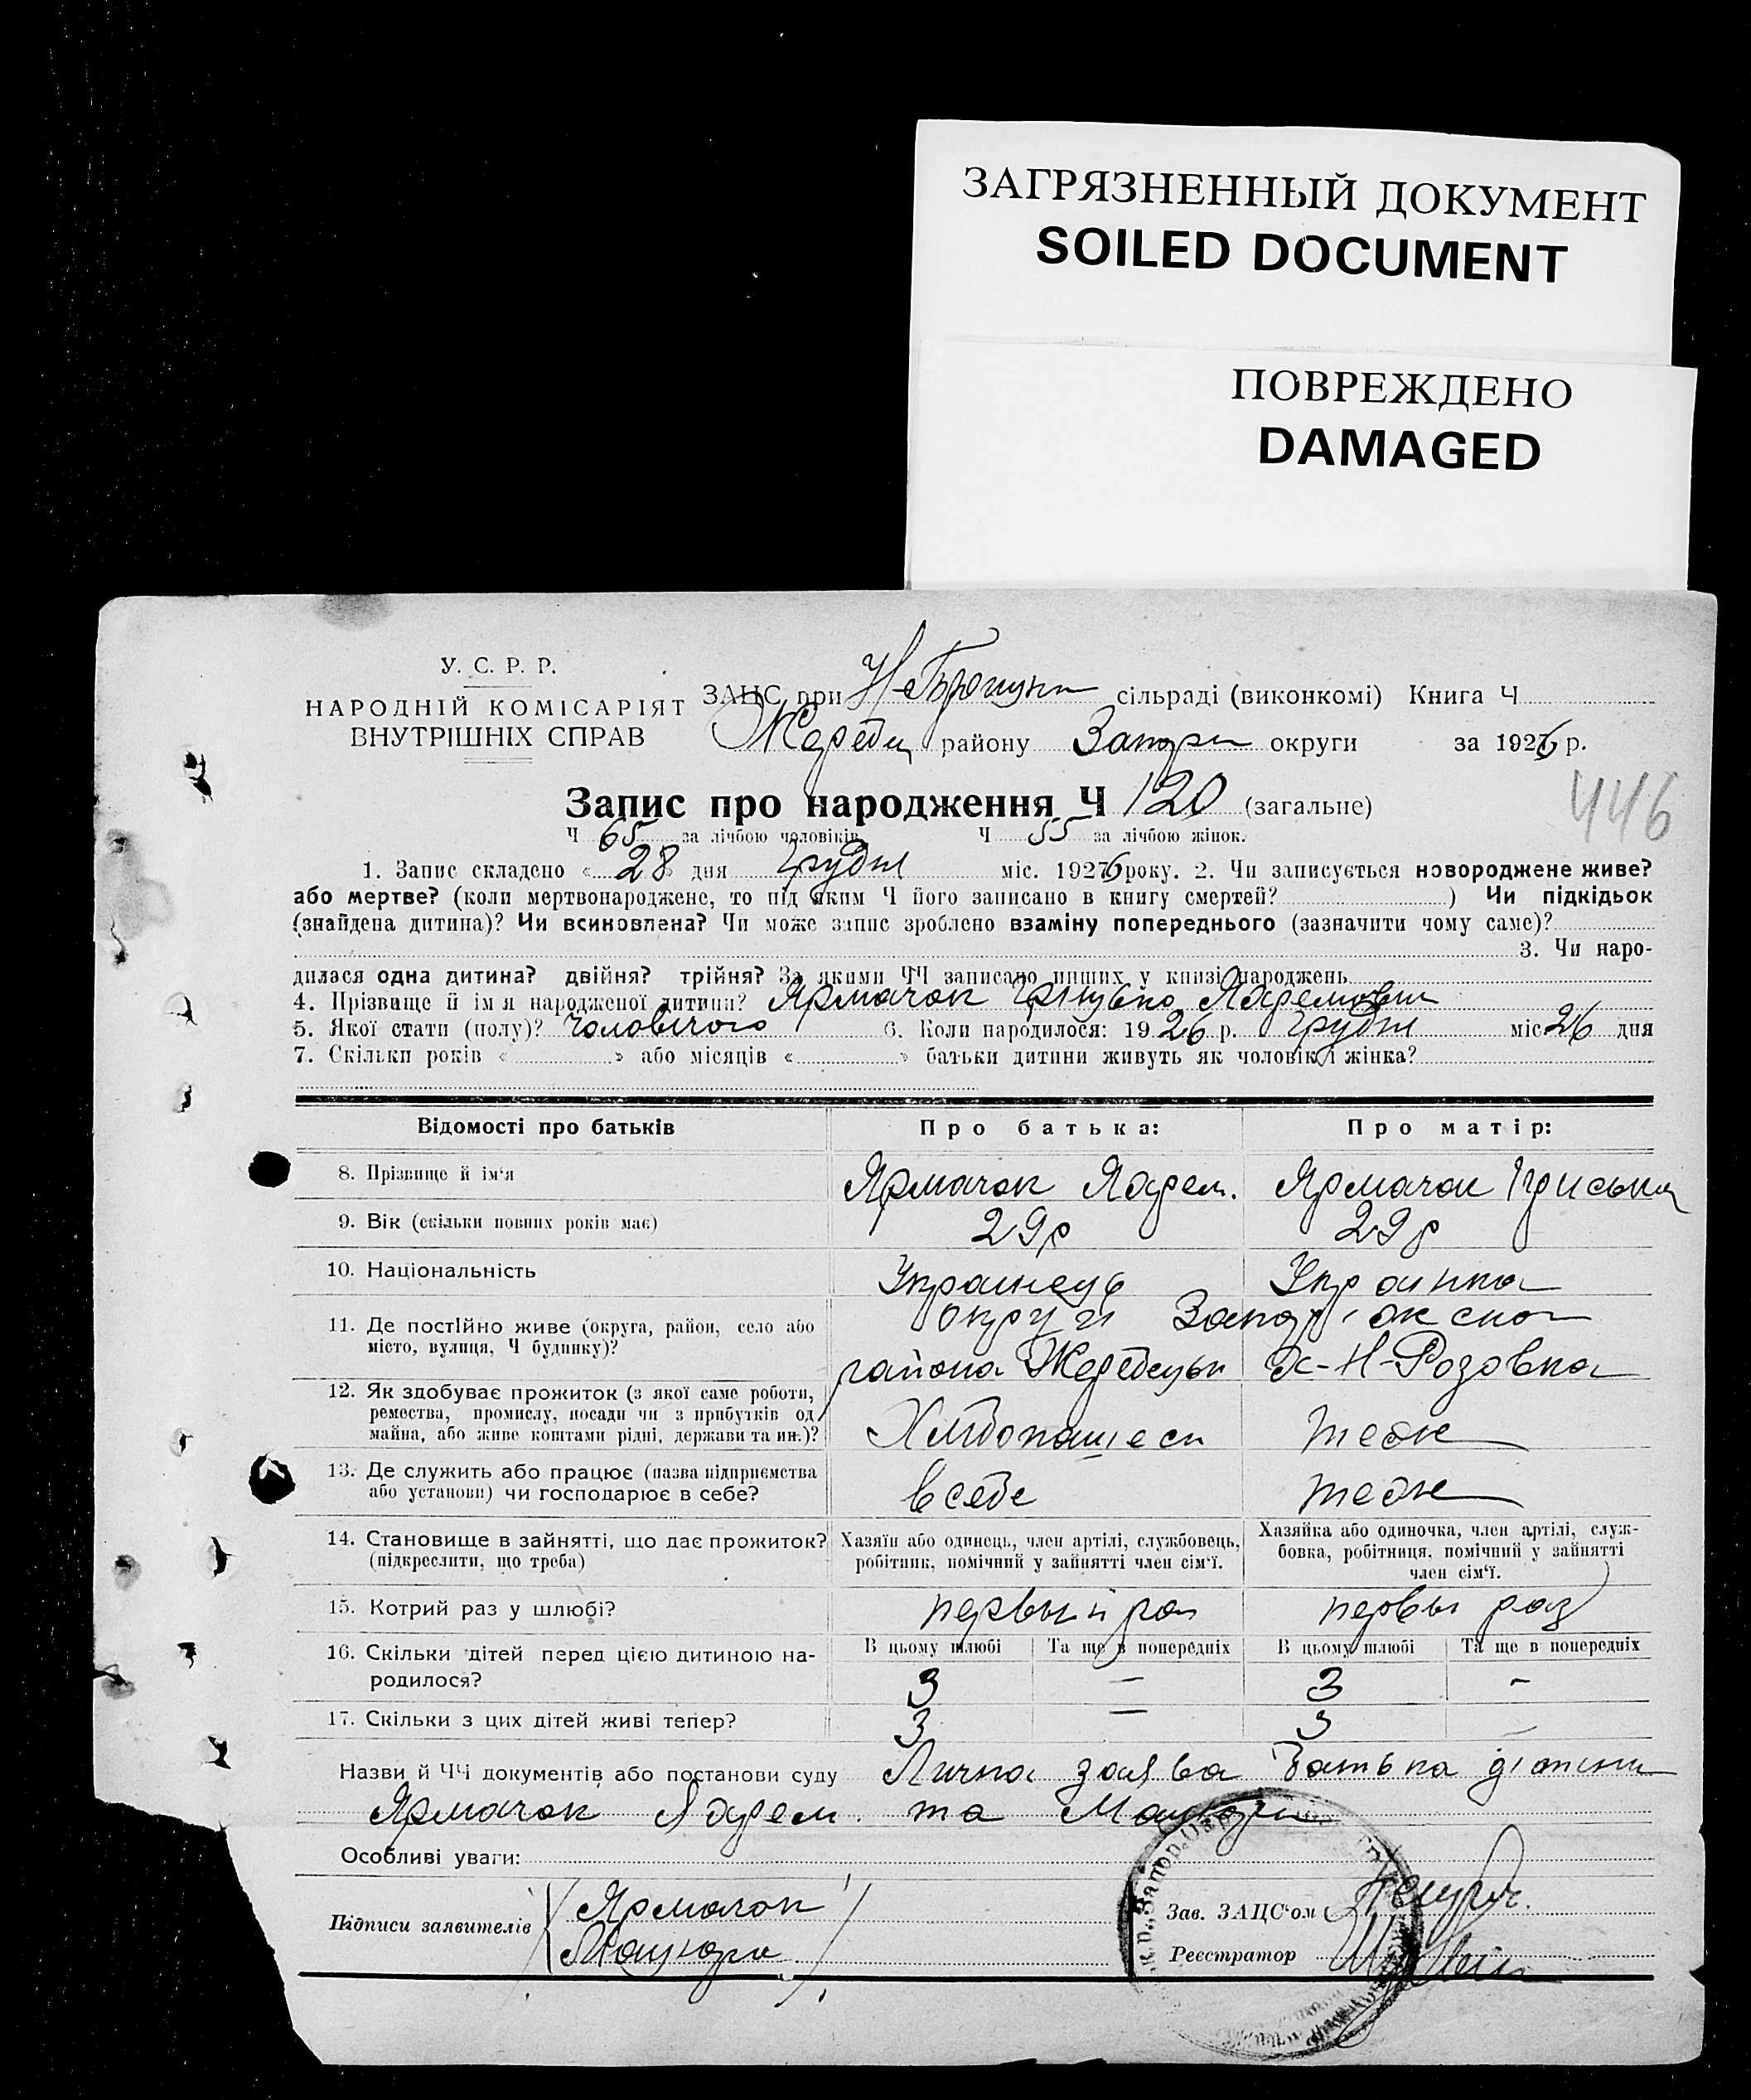 ЗАГРЯЗНЕННЫЙ ДОКУМЕНТ
SOILED DOCUMENT
ПОВРЕЖДЕНО
DAMAGED
У. С. Р. Р.
НАРОДНІЙ КОМІСАРІЯТ
ВНУТРІШНІХ СПРАВ
ЗАЦС при сільраді (виконкомі) Книга Ч
району округи за 1926 р.
Запис про народження Ч 120 (загальне)
446
Ч 65 за лічбою чоловіків Ч 55 за лічбою жінок.
1. Запис складено « 28 » дня Грудня міс. 1926 року. 2. Чи записується новороджене живе?
або мертве? (коли мертвонароджене, то під яким Ч його записано в книгу смертей? ) Чи підкідьок
(знайдена дитина)? Чи всиновлена? Чи може запис зроблено взаміну попереднього (зазначити чому саме)?
3. Чи наро-
дилася одна дитина? двійня? трійня? За якими ЧЧ записано инших у книзі народжень
4. Прізвище й ім'я народженої дитини? Ярмачок
5. Якої стати (полу)? Чоловічого 6. Коли народилося: 1926 р. Грудня міс 26 дня
7. Скільки років « » або місяців « » батьки дитини живуть як чоловік і жінка?
Відомості про батьків Про батька: Про матір:
8. Прізвище й ім'я Ярмачок Ярмачок
9. Вік (скільки повних років має) 29 р 29 р
10. Національність Українець Українка
11. Де постійно живе (округа, район, село або місто, вулиця, Ч будинку)? округи
района Н-Розовка
12. Як здобуває прожиток (з якої саме роботи,
ремества, промислу, посади чи з прибутків од
майна, або живе коштами рідні, держави та ин.)? теж
13. Де служить або працює (назва підприємства
або установи) чи господарює в себе? в себе теж
14. Становище в зайнятті, що дає прожиток?
(підкреслити, що треба)
Хазяїн або одинець, член артілі, службовець,
робітник, помічний у зайнятті член сім'ї.
Хазяйка або одиночка, член артілі, служ-
бовка, робітниця, помічний у зайнятті
член сім'ї.
15. Котрий раз у шлюбі? первый раз первы раз
В цьому шлюбі Та ще в попередніх В цьому шлюбі Та ще в попередніх
16. Скільки дітей перед цією дитиною на-
родилося? 3 — 3 -
17. Скільки з цих дітей живі тепер? 3 — 3 —
Назви й ЧЧ документів або постанови суду Лична заява батька дітини
Ярмачок та
Особливі уваги:
Підписи заявителів Ярмачок
Зав. ЗАЦС'ом
Реєстратор